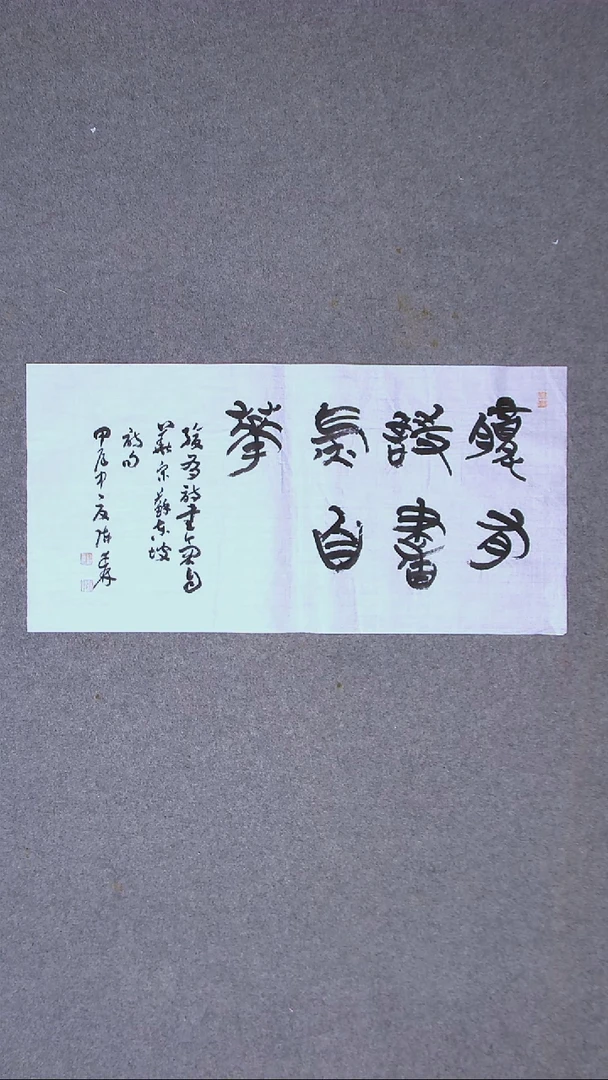 腹有
詩書
氣自
華
腹有詩書氣自
華宋蘇東坡
詩句
甲辰中夏陳